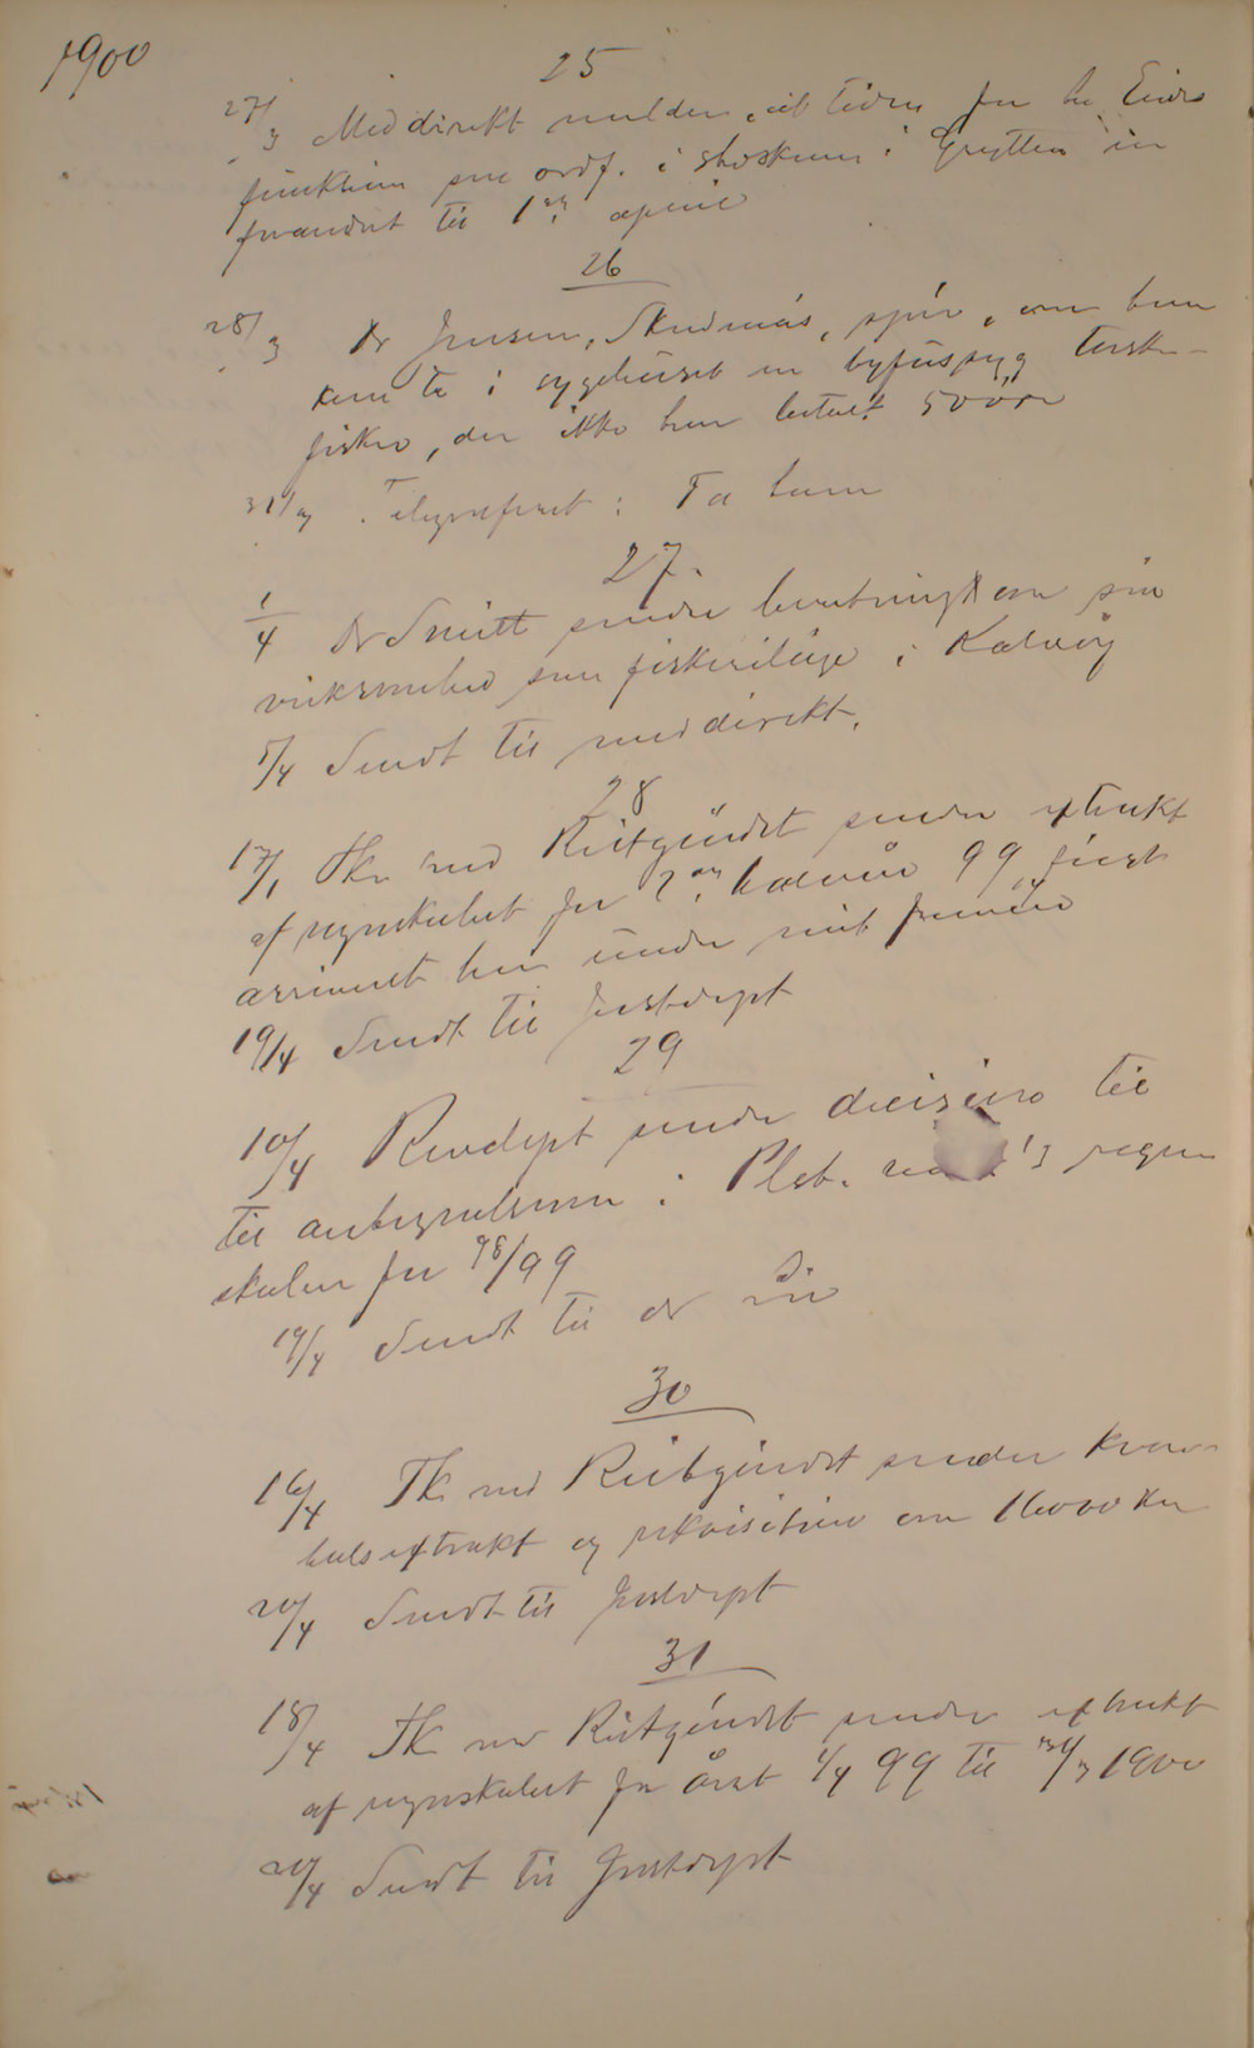 1900
25
27/3 Meddirekt melder, at tiden for hr Eides
funktion som ordf. i shskom i Grytten er
forandret til 1ste april
26
28/3 Dr Jensen, Skudenes, spør, om han
kan ta i sygehuset en tyfussyg torske-
fisker, der ikke har betalt 50 øre
31/3 Telegraferet: Ta ham
27.
1/4 Dr Smitt sender beretning om sin
virksomhed som fiskerilæge i Kalvåg
5/4 Sendt til meddirekt.
28
17/1 Tk ved Reitgjerdet sender extrakt
af regnskabet for 2det halvår 99, først
arriveret hid under mit fravær
19/4 Sendt til Justdept
29
10/4 Revdept sender decisions til
til antegnelserne i Plst. regn
skaber for 98/99
19/4 Sendt til dr
30
16/4 Tk ved Reitgjerdet sender kvar-
talsextrakt og rekvisition om 16000 kr
20/4 Sendt til Justdept
31
18/4 Tk ved Reitgjerdet sender extrakt
af regnskabet for året 1/4 99 til 31/3 1900
20/4 Sendt til Justdept